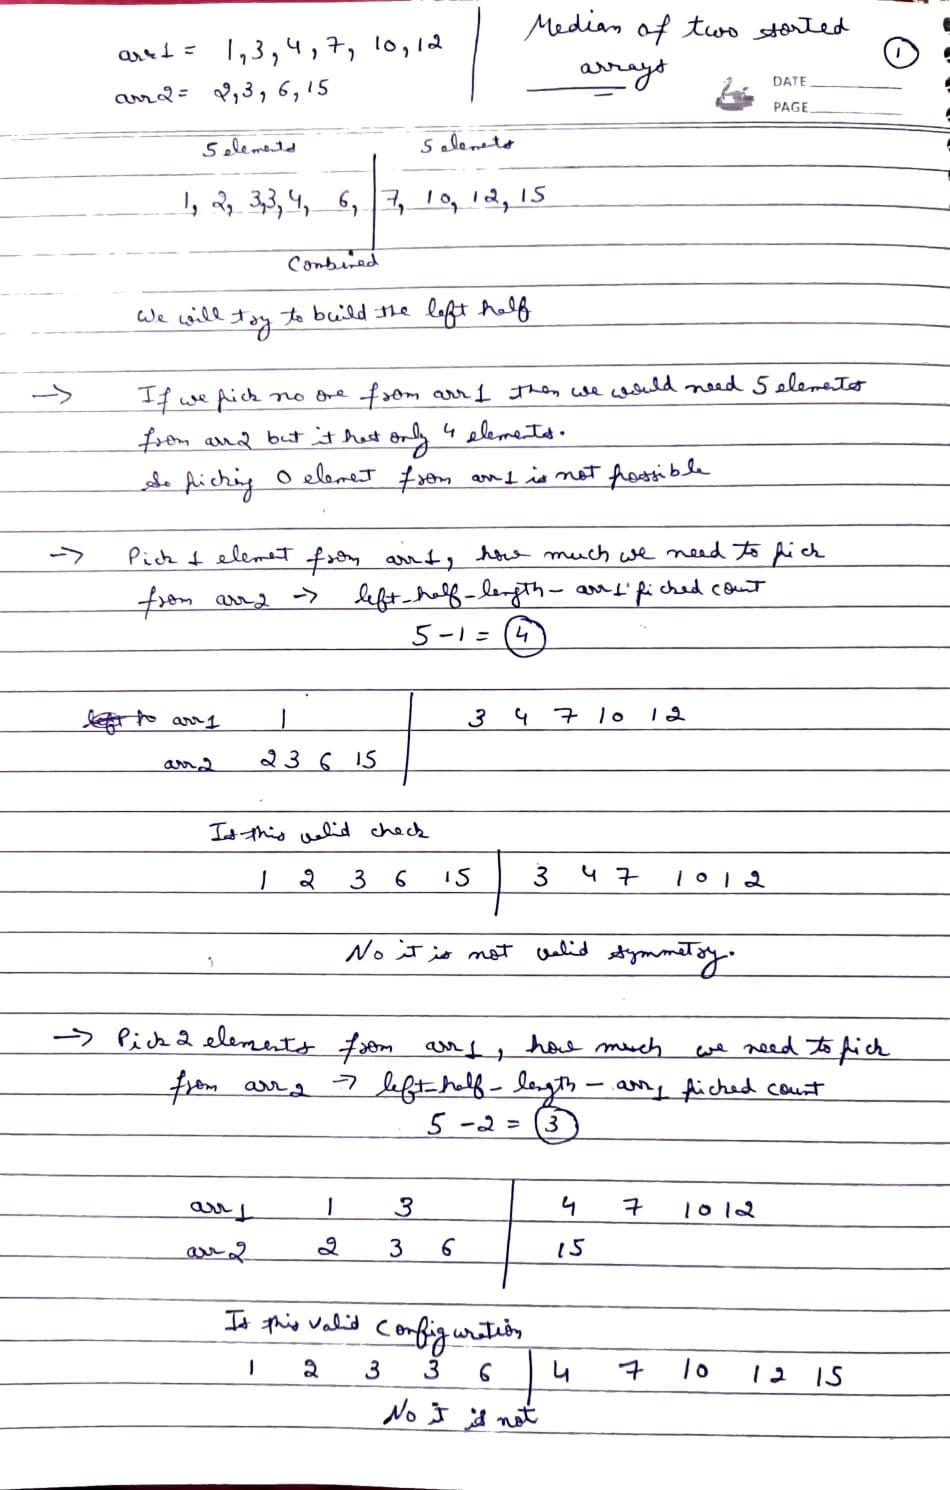 arr1 = 1, 3, 4, 7, 10, 12
arr2 = 2, 3, 6, 15
Median of two sorted
arrays
1
DATE
PAGE
5 elements 5 elemets
1, 2, 3, 3, 4, 6, | 7, 10, 12, 15
Combined
We will try to build the left half
→ If we pick no one from arr1 then we would need 5 elements
from arr2 but it has only 4 elements.
So picking 0 elemet from arr1 is not possible
→ Pick 1 elemet from arr1, how much we need to pick
from arr2 → left-half-length - arr1 picked count
5 - 1 = 4
arr1 1 | 3 4 7 10 12
arr2 2 3 6 15 |
Is this valid check
1 2 3 6 15 | 3 4 7 10 12
No it is not valid symmetry.
→ Pick 2 elements from arr1, how much we need to pick
from arr2 → left-half-length - arr1 picked count
5 - 2 = 3
arr1 1 3 | 4 7 10 12
arr2 2 3 6 | 15
Is this valid configuration
1 2 3 3 6 | 4 7 10 12 15
No it is not